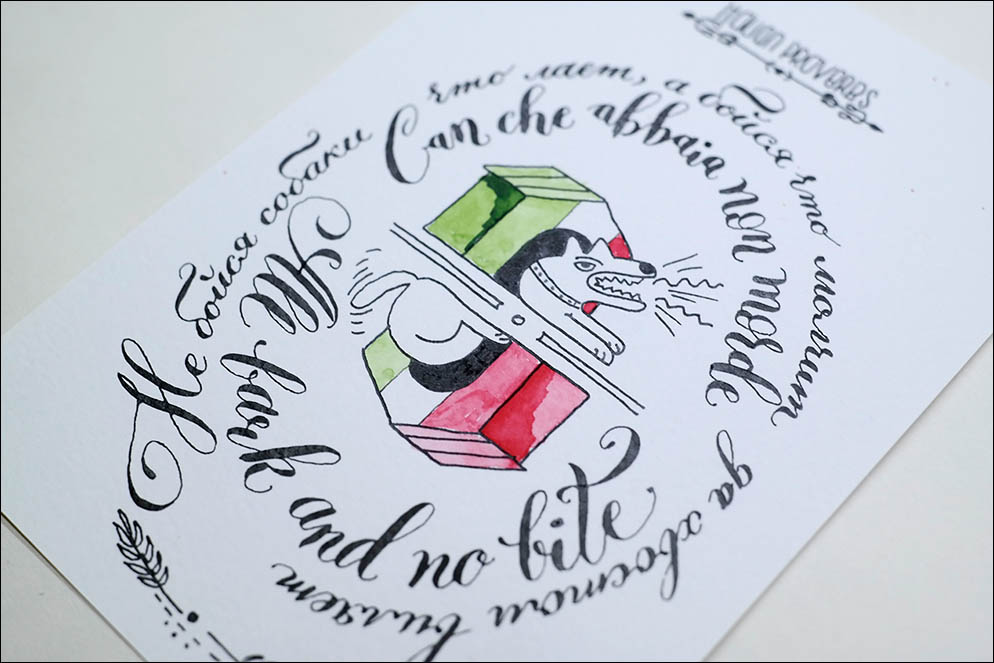 ITALIAN PROVERBS
Не бойся собаки что лает, а бойся что молчит да хвостом виляет
Can che abbaia non morde
All bark and no bite